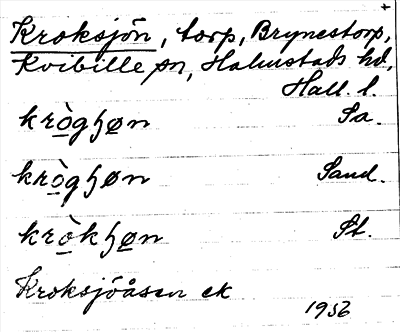 +
Kroksjön, torp, Brynestorp,
Kvibille sn, Halmstads hd,
Hall. l.
krò̱gꜧø̱n Sa.
krò̱gꜧøn Sand.
krò̱kꜧø̱n St.
Kroksjöåsen ek
1956